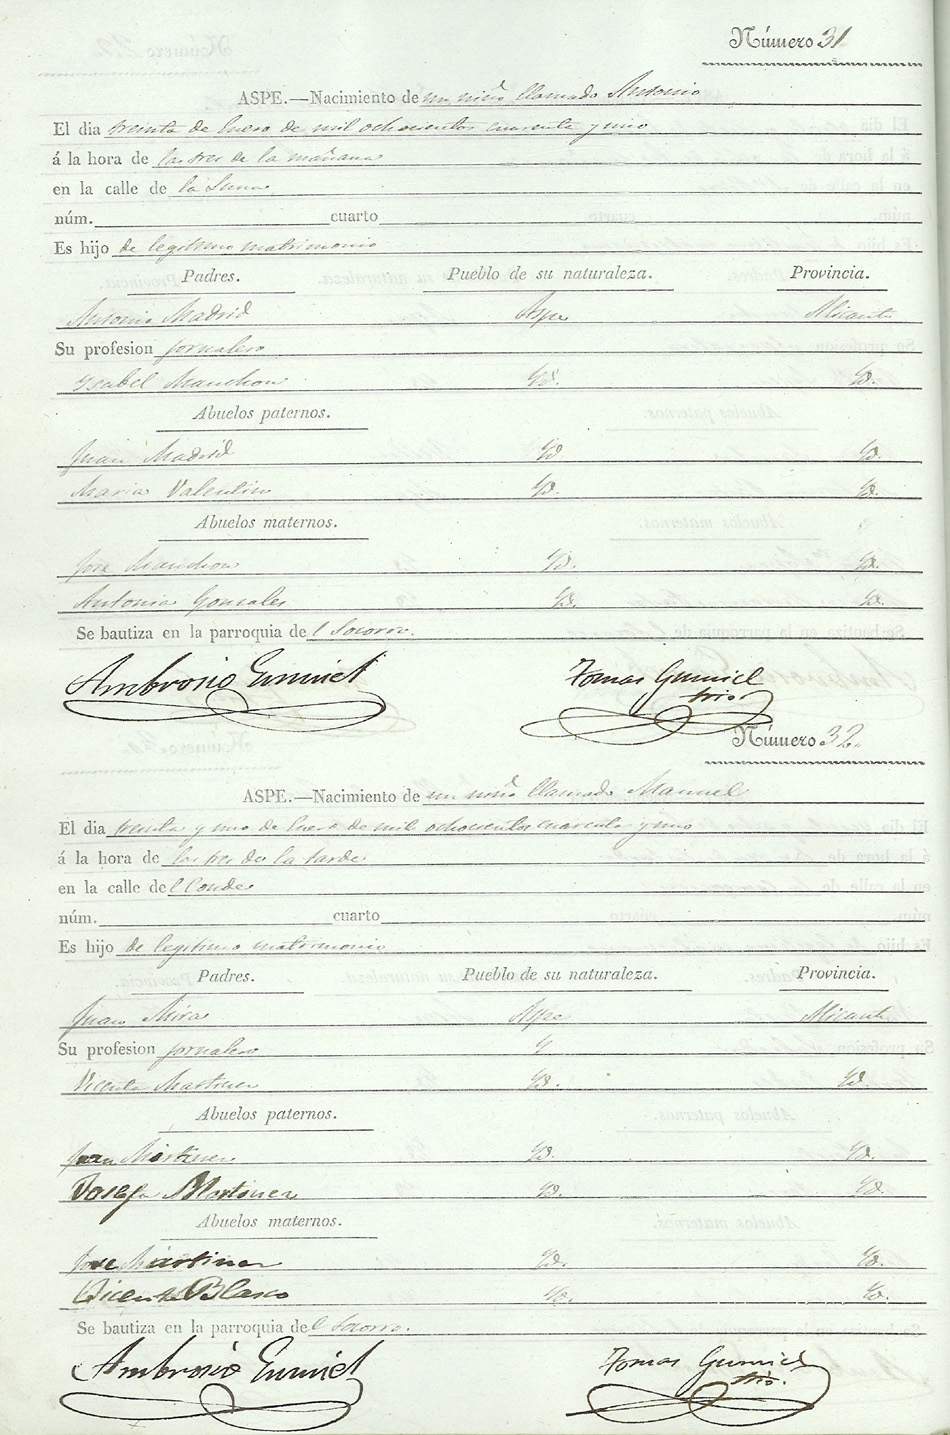 Número 31
ASPE.—Nacimiento de un niño llamado Antonio
El dia treinta de Enero de mil ochocientos cuarenta y uno
á la hora de las tres de la mañana
en la calle de la Luna
núm. cuarto
Es hijo de legitimo matrimonio
Padres. Pueblo de su naturaleza. Provincia.
Antonio Madrid Aspe Alicante
Su profesion jornalero
Ysabel Manchon Yd. Yd.
Abuelos paternos.
Juan Madrid Yd Yd.
Maria Valentin Yd. Yd.
Abuelos maternos.
Jose Manchon Yd. Yd.
Antonia Gonsales Yd. Yd.
Se bautiza en la parroquia de l Socorro.
Ambrosio Tomas
srio.
Número 32.
ASPE.—Nacimiento de un niño llamado Manuel
El dia treinta y uno de Enero de mil ochocientos cuarenta y uno
á la hora de las tres de la tarde
en la calle de l Conde
núm. cuarto
Es hijo de legitimo matrimonio
Padres. Pueblo de su naturaleza. Provincia.
Juan Mira Aspe Alicante
Su profesion jornalero
Vicenta Martinez Yd. Yd.
Abuelos paternos.
Juan Yd. Yd.
Josefa Martinez Yd. Yd.
Abuelos maternos.
Jose Martinez Yd. Yd.
Vicenta Blasco Yd. Yd.
Se bautiza en la parroquia de l Socorro.
Ambrosio Tomas
srio.